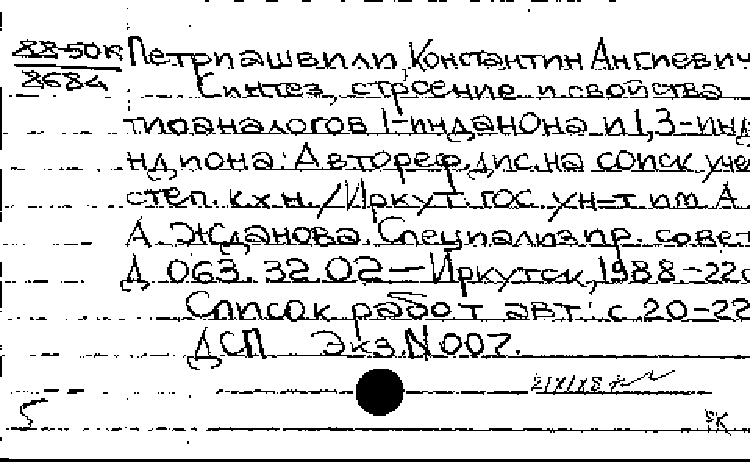 88-50к Петриашвили, Константин Ангиевич
868д Синтез, строение и свойства
тиоаналогов 1-инданона и 1,3-инд
ндиона: Автореф.дис.на соиск уче
степ. к.х.н. / Иркут. гос. ун-т им А.
А. Жданова. Специализир. совет
Д 063.32.02 — Иркутск, 1988.-22с
Список работ авт: с.20-22
ДСП Экз.N007.